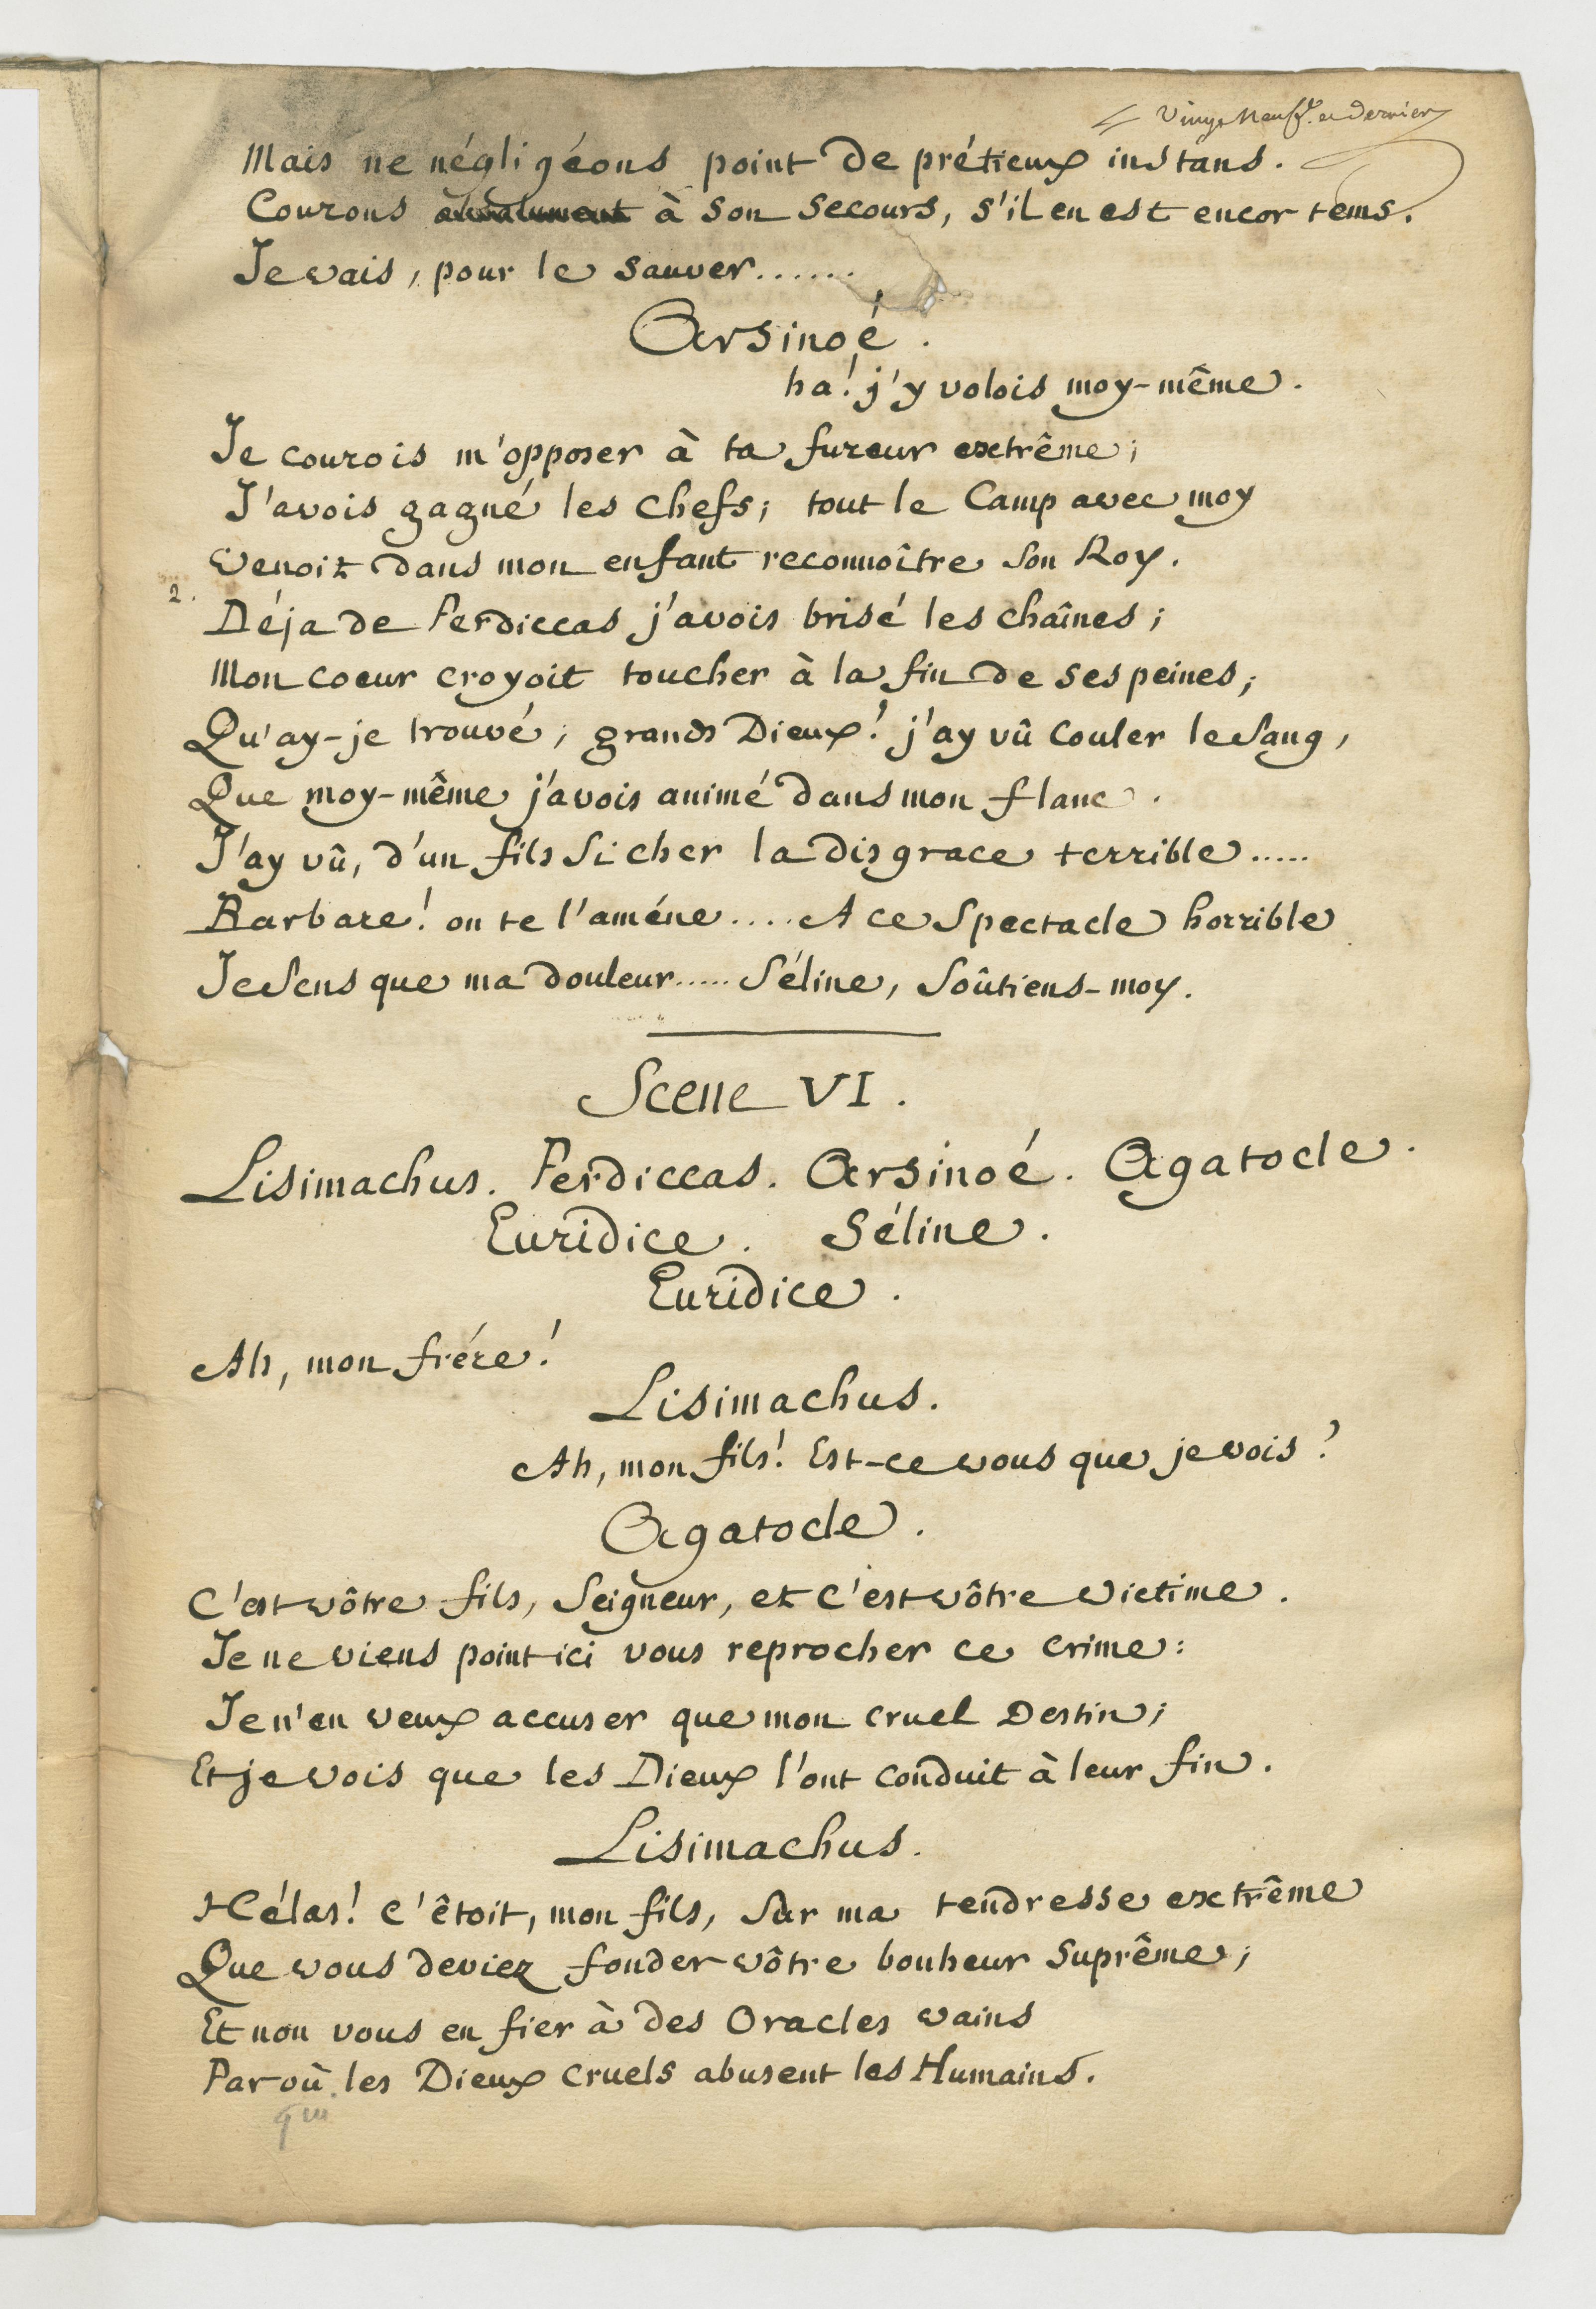 Vingt Neuf.e et dernier
Mais ne négligéons point de prétieux instans.
Courons à son secours, s'il en est encor tems.
Je vais, pour le sauver......
Arsinoé.
ha! j'y volois moy-même.
Je courois m'opposer à ta fureur extrême;
J'avois gagné les chefs; tout le Camp avec moy
Venoit dans mon enfant reconnoître son Roy.
2.
Déja de Perdiccas j'avois brisé les chaînes;
Mon coeur croyoit toucher à la fin de ses peines;
Qu'ay-je trouvé, grands Dieux! j'ay vû couler le sang,
Que moy-même j'avois animé dans mon flanc.
J'ay vû, d'un fils si cher la disgrace terrible.....
Barbare! on te l'améne.... A ce spectacle horrible
Je sens que ma douleur..... Séline, soûtiens-moy.
Scene VI.
Lisimachus. Perdiccas. Arsinoé. Agatocle.
Euridice. Séline.
Euridice.
Ah, mon frére!
Lisimachus.
Ah, mon fils! Est-ce vous que je vois?
Agatocle.
C'est vôtre fils, Seigneur, et c'est vôtre victime.
Je ne viens point ici vous reprocher ce crime:
Je n'en veux accuser que mon cruel Destin;
Et je vois que les Dieux l'ont conduit à leur fin.
Lisimachus.
Hélas! c'êtoit, mon fils, sur ma tendresse extrême
Que vous deviez fonder vôtre bonheur suprême;
Et non vous en fier à des Oracles vains
Par où les Dieux cruels abusent les Humains.